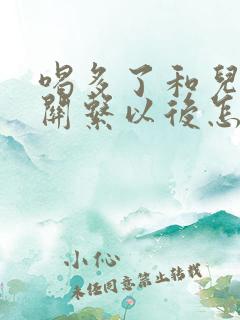 喝多了和兒
關繫以後怎
小心
未经同意禁止转载